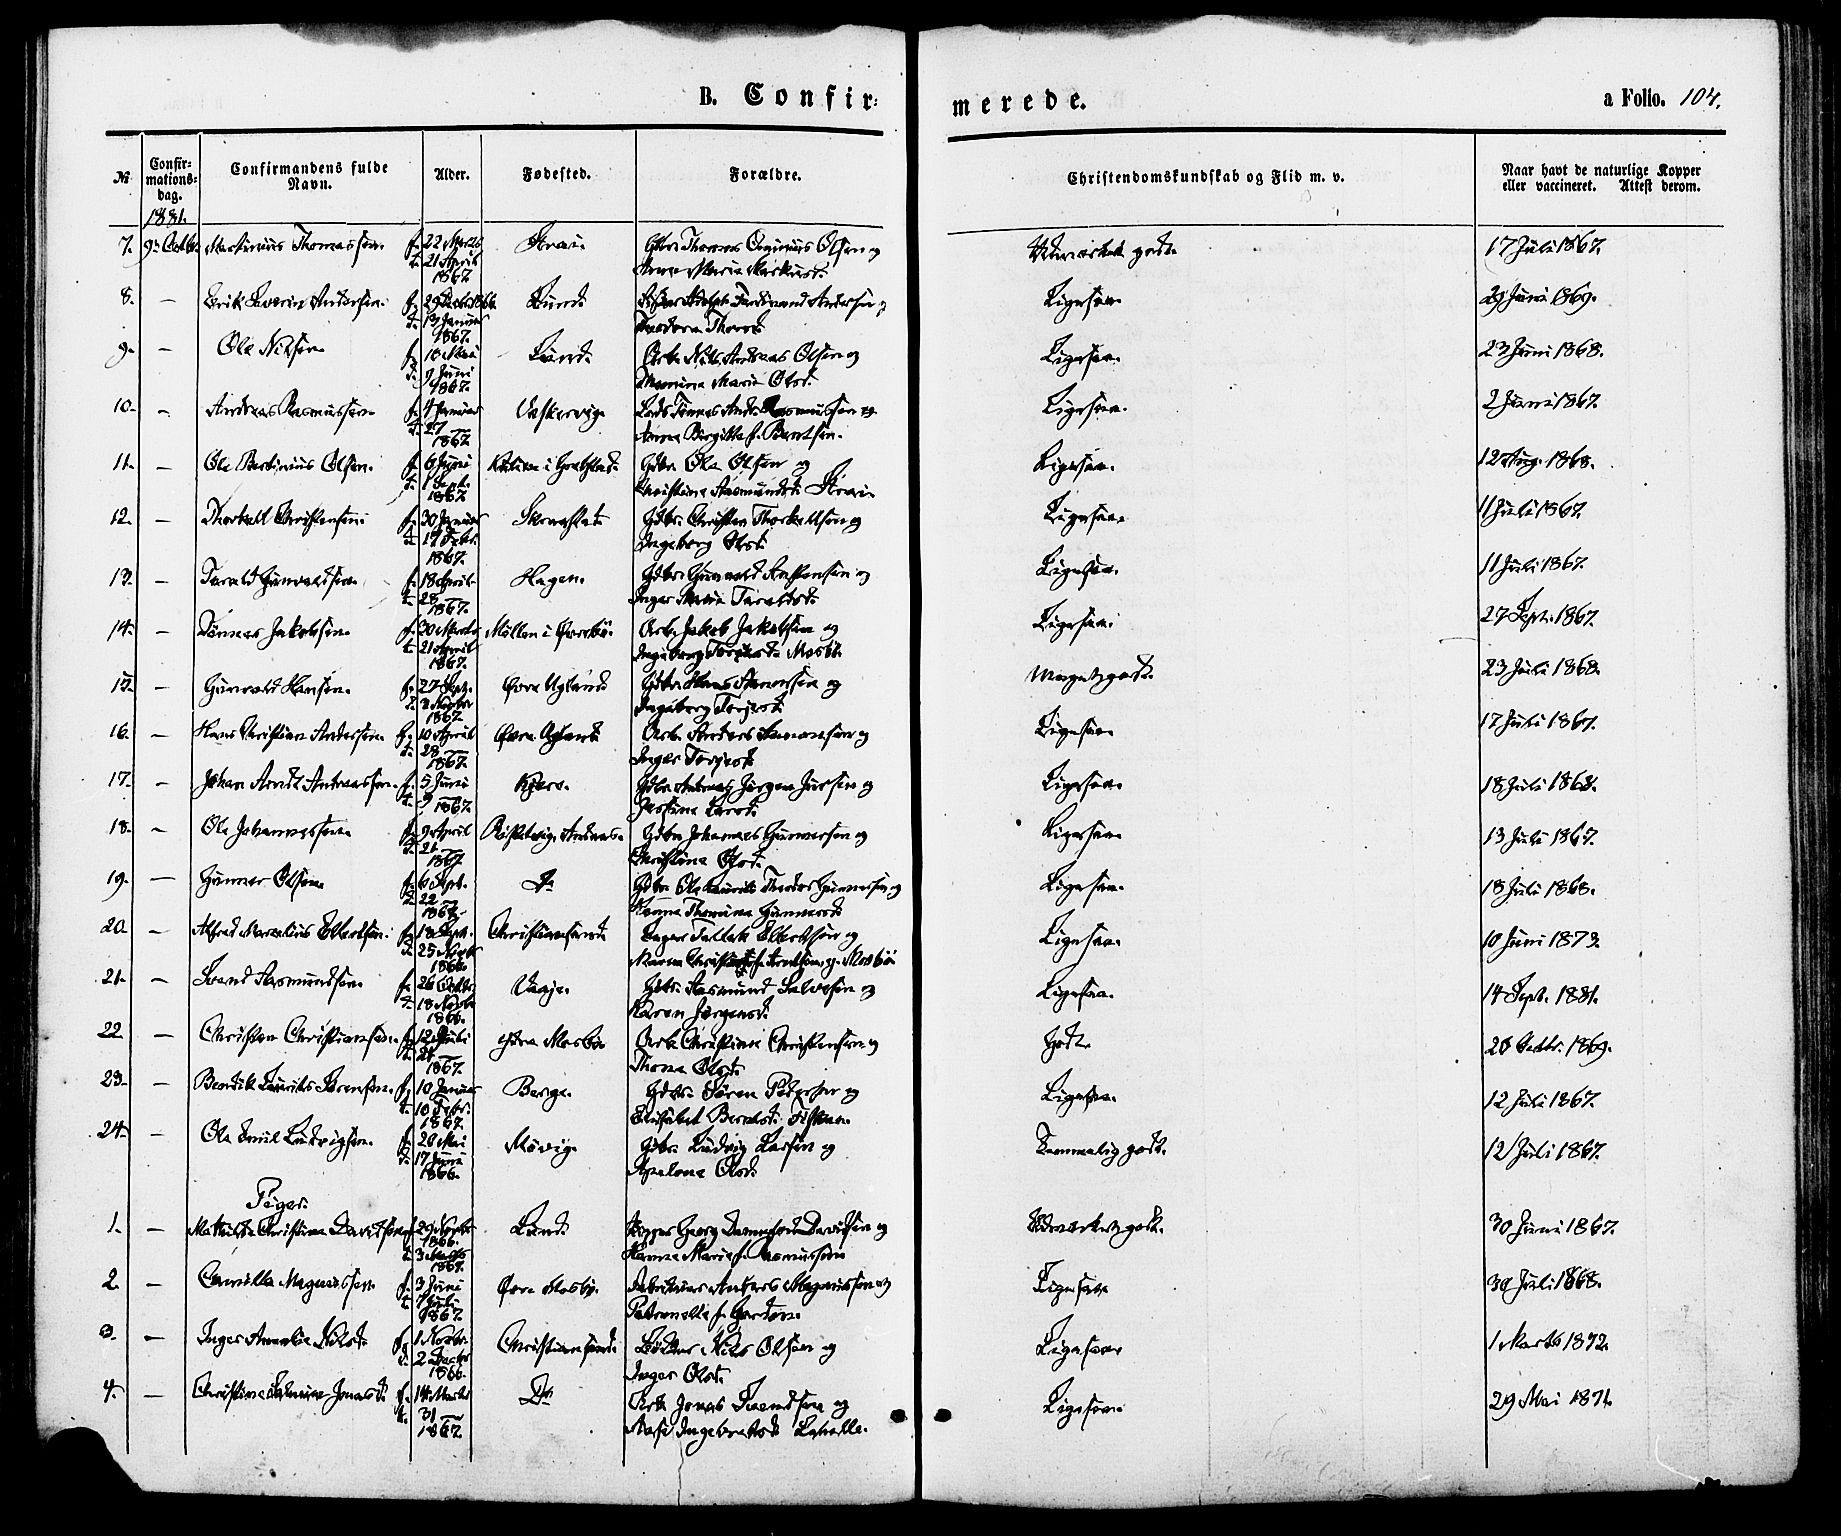 B. Confir-
merede.
a Folio. 104.
№
Confir-
mations-
dag.
1881.
Confirmandens fulde
Navn.
Alder.
Fødested.
Forældre.
Christendomskundskab og Flid m. v.
Naar havt de naturlige Kopper
eller vaccineret. Attest derom.
7. 9. Octbr. Martinius Thomassen. f. 22 Marts Kraai Gbr. Thomas Olsen og Udmærket godt. 17 Juli 1867.
t. 21 April Anne Marie Markusd.
1867.
8. — Erik Severin Andersen f. 29 Decbr 1866. Lund. Adolph Ferdinand Andersen og Ligesaa. 29 Juni 1869.
t. 13 Januar Theodora Thorsd.
1867.
9. — Ole Nilsen. f. 10 Mai Lund. Arb. Nils Andreas Olsen og Ligesaa. 23 Juni 1868.
t. 9 Juni Marie Olsd.
1867.
10. — Andreas Rasmussen. f. 4 Januar Vaskervig. Lods Tønnes Andr. Rasmussen og Ligesaa. 2 Juni 1867.
t. 27 — Anna Birgitte f. Berntsen.
1867.
11. — Ole Bertinius Olsen. f. 6 Juni Gbr. Ole Olsen og Ligesaa. 12 Aug. 1868.
t. 1 Sept. Christine Aasmundsd. Kraai
1867.
12. — Thorkell Christensen f. 30 Januar Gbr. Christen Thorkellsen og Ligesaa. 11 Juli 1867.
t. 17 Febr. Ingeborg Olsd.
1867.
13. — Tarald Gunvaldsen. f. 18 April Hagen. Gbr. Gunvald og Ligesaa. 11 Juli 1867.
t. 28 — Inger Marie Taraldsd.
1867.
14. — Tønnes Jakobsen. f. 30 Marts Møllen i Øvrebø. Arb. Jakob Jakobsen og Ligesaa. 27 Sept. 1867.
t. 21 April Ingeborg Mosbø.
1867.
15. — Gunvald Hansen. f. 27 Sept. Øvre Ugland Gbr. Hans og Meget godt. 23 Juli 1868.
t. 3 Novbr Ingeborg Torjesd.
1867.
16. — Hans Christian Andersen. f. 10 April Øvre Ugland Arb. Anders og Ligesaa. 17 Juli 1867.
t. 28 — Inger Torjesd.
1867.
17. — Johan Arndt Andreassen. f. 5 Juni Kjære. Gbr. Andreas Jørgen og Ligesaa. 18 Juli 1868.
t. 9 — Larsd.
1867.
18. — Ole Johannessen f. 9 April Gbr. Johannes Gunnersen og Ligesaa. 13 Juli 1867.
t. 21 — Christine Olsd.
1867.
19. — Gunner Olsen. f. 6 Sept. Do Gbr. Ole Theodor Gunnersen og Ligesaa. 18 Juli 1868.
t. 22 — Hanne Thomine Gunnersd.
1867.
20. — Alfred Marcelius Ellertsen. f. 18 Sept. Christianssand. Tallak Ellertsen og Ligesaa. 10 Juni 1873.
t. 25 Novbr Maren f. Arntsen, Mosbø
1866.
21. — Svend Aasmundsen. f. 26 Octbr. Vaaje. Gbr. Aasmund Salvesen og Ligesaa. 14 Sept. 1881.
t. 18 Novbr Karen Jørgensd.
1866.
22 — Christen Christiansen. f. 12 Juli Ydre Mosbø Arb. Christian Christensen og Godt. 20 Octbr. 1869.
t. 21 — Thone Olsd.
1867.
23. — Bendik Laurits Sørensen. f. 10 Januar Berge. Gbr. Søren Pedersen og Ligesaa. 12 Juli 1867.
t. 10 Febr. Elisabet Berntsd.
1867.
24. — Ole Emil Ludvigsen. f. 20 Mai Møvig. Gbr. Ludvig Larsen og Temmelig godt. 12 Juli 1867.
t. 17 Juni Apelone Olsd.
1866.
Piger.
1. — Mathilde Christine Davidsen f. 29 Novbr Lund. Georg Davidsen og Udmærket godt. 30 Juni 1867.
1866.
t. 3 Marts Hanne Marie f. Rasmussen
1867.
2. — Camilla Magnussen. f. 3 Juni Øvre Mosbø. Anders Magnussen og Ligesaa 30 Juli 1868.
t. 7 Juli Petronelle f.
1867.
3. — Inger Amalie Nilsd. f. 1 Novbr. Christianssand. Nils Olsen og Ligesaa. 1 Marts 1872.
t. 2 Decbr Inger Olsd.
1866.
4. — Christine Jonasd. f. 14 Marts Do Arb. Jonas Svendsen og Ligesaa. 29 Mai 1871.
t. 31 — Ingebretsd.
1867.